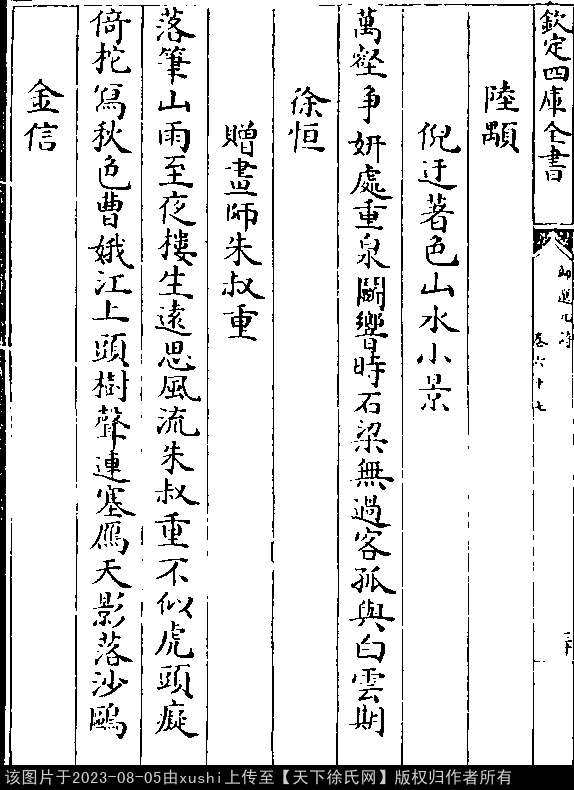 欽定四庫全書
御選元詩
卷六十七
陸顒
倪迂著色山水小景
萬壑爭妍處重泉鬭響時石梁無過客孤與白雲期
徐恒
贈畫師朱叔重
落筆山雨至夜樓生遠思風流朱叔重不似虎頭癡
倚柁寫秋色曹娥江上頭樹聲連塞鴈天影落沙鷗
金信
该图片于2023-08-05由xushi上传至【天下徐氏网】版权归作者所有